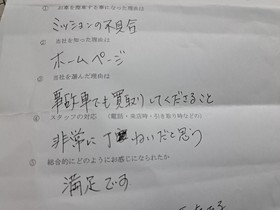 ① お車を買換する事になった理由は
ミッションの不具合
② 当社を知った理由は
ホームページ
③ 当社を選んだ理由は
事故車でも買取りしてくださること
④ スタッフの対応 (電話・来店時・引き取り時などの)
非常に丁ねいだと思う
⑤ 総合的にどのようにお感じになられたか
満足です